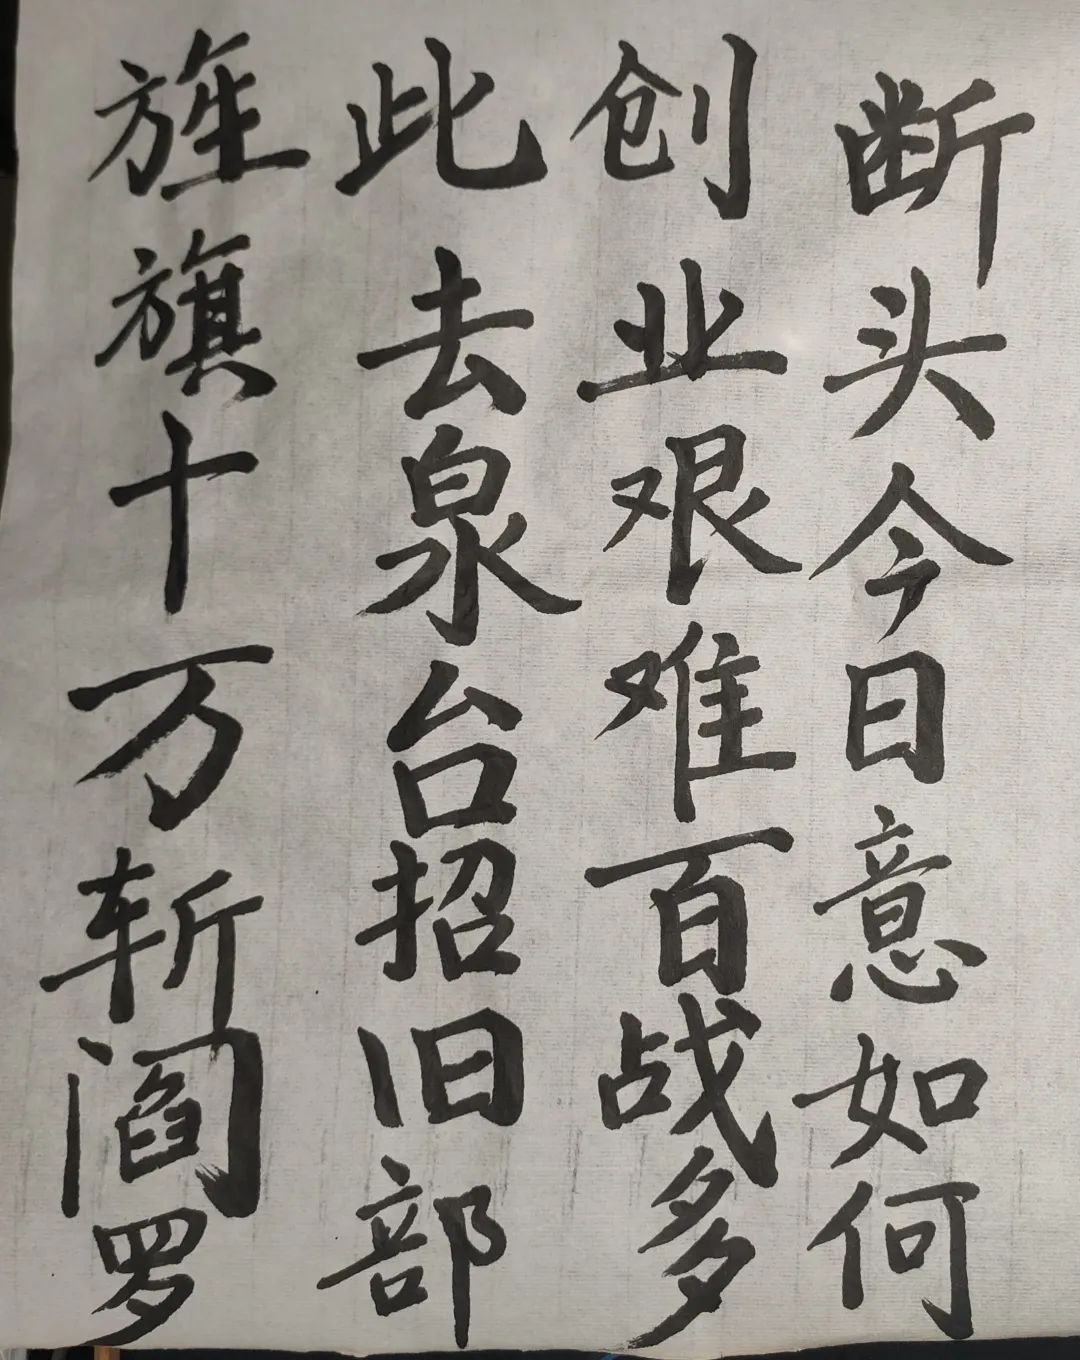 断头今日意如何
创业艰难百战多
此去泉台招旧部
旌旗十万斩阎罗